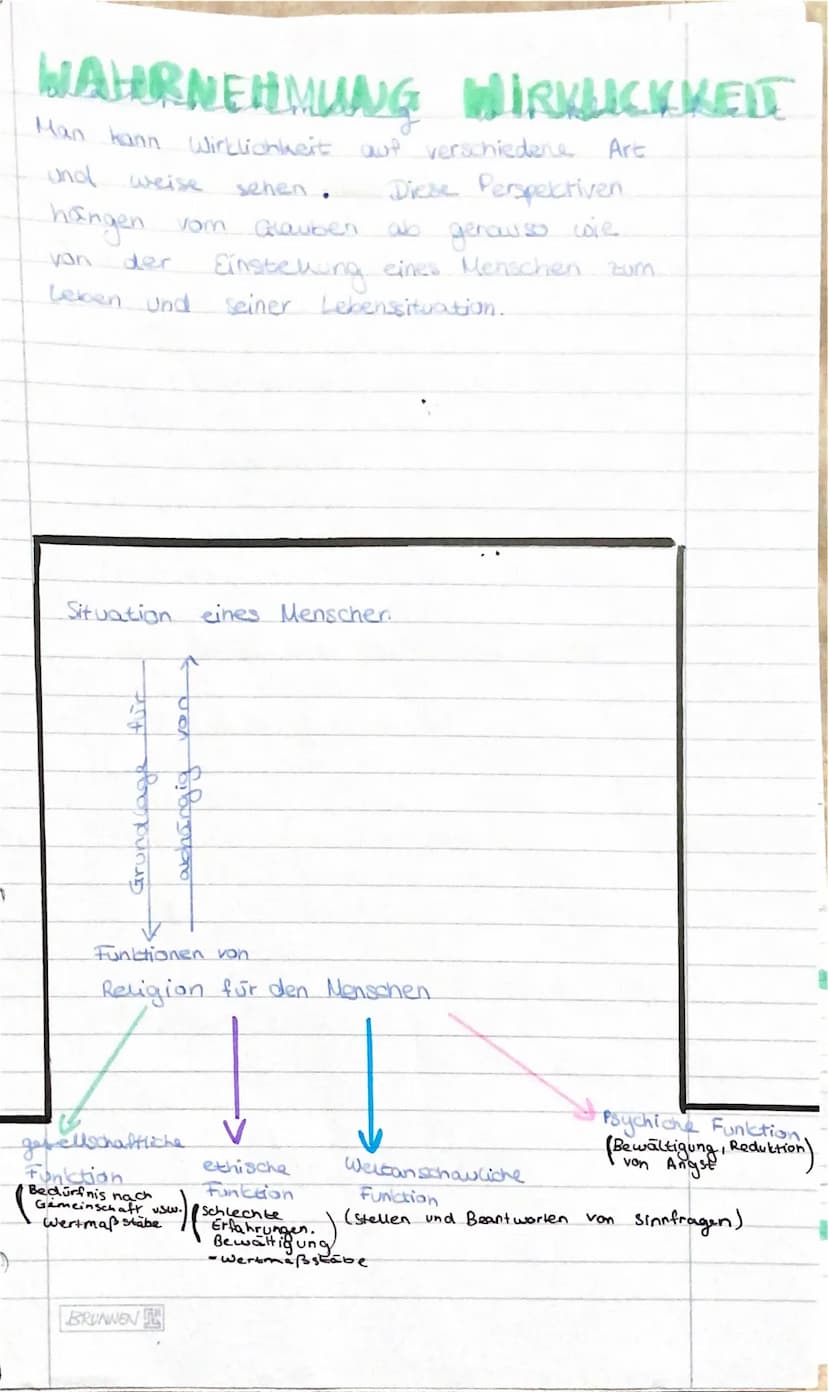 WAHRNEHMUNG WIRKLICKKEIT
Man kann Wirklichkeit auf verschiedene Art
und weise sehen. Diese Perspektiven
hängen vom Glauben ab genauso wie
von der Einstellung eines Menschen zum
Leben und seiner Lebenssituation.
Situation eines Menschen
Grundlage für
abhängig von
Funktionen von
Religion für den Menschen
gesellschaftliche
Funktion
(Bedürfnis nach
Gemeinschaft usw.
Wertmaßstäbe)
ethische
Funktion
(schlechte
Erfahrungen.
Bewältigung)
-Wertmaßstäbe
Weltanschauliche
Funktion
(Stellen und Beantworten von Sinnfragen)
Psychiche Funktion
(Bewältigung, Reduktion)
von Angst
BRUNNEN